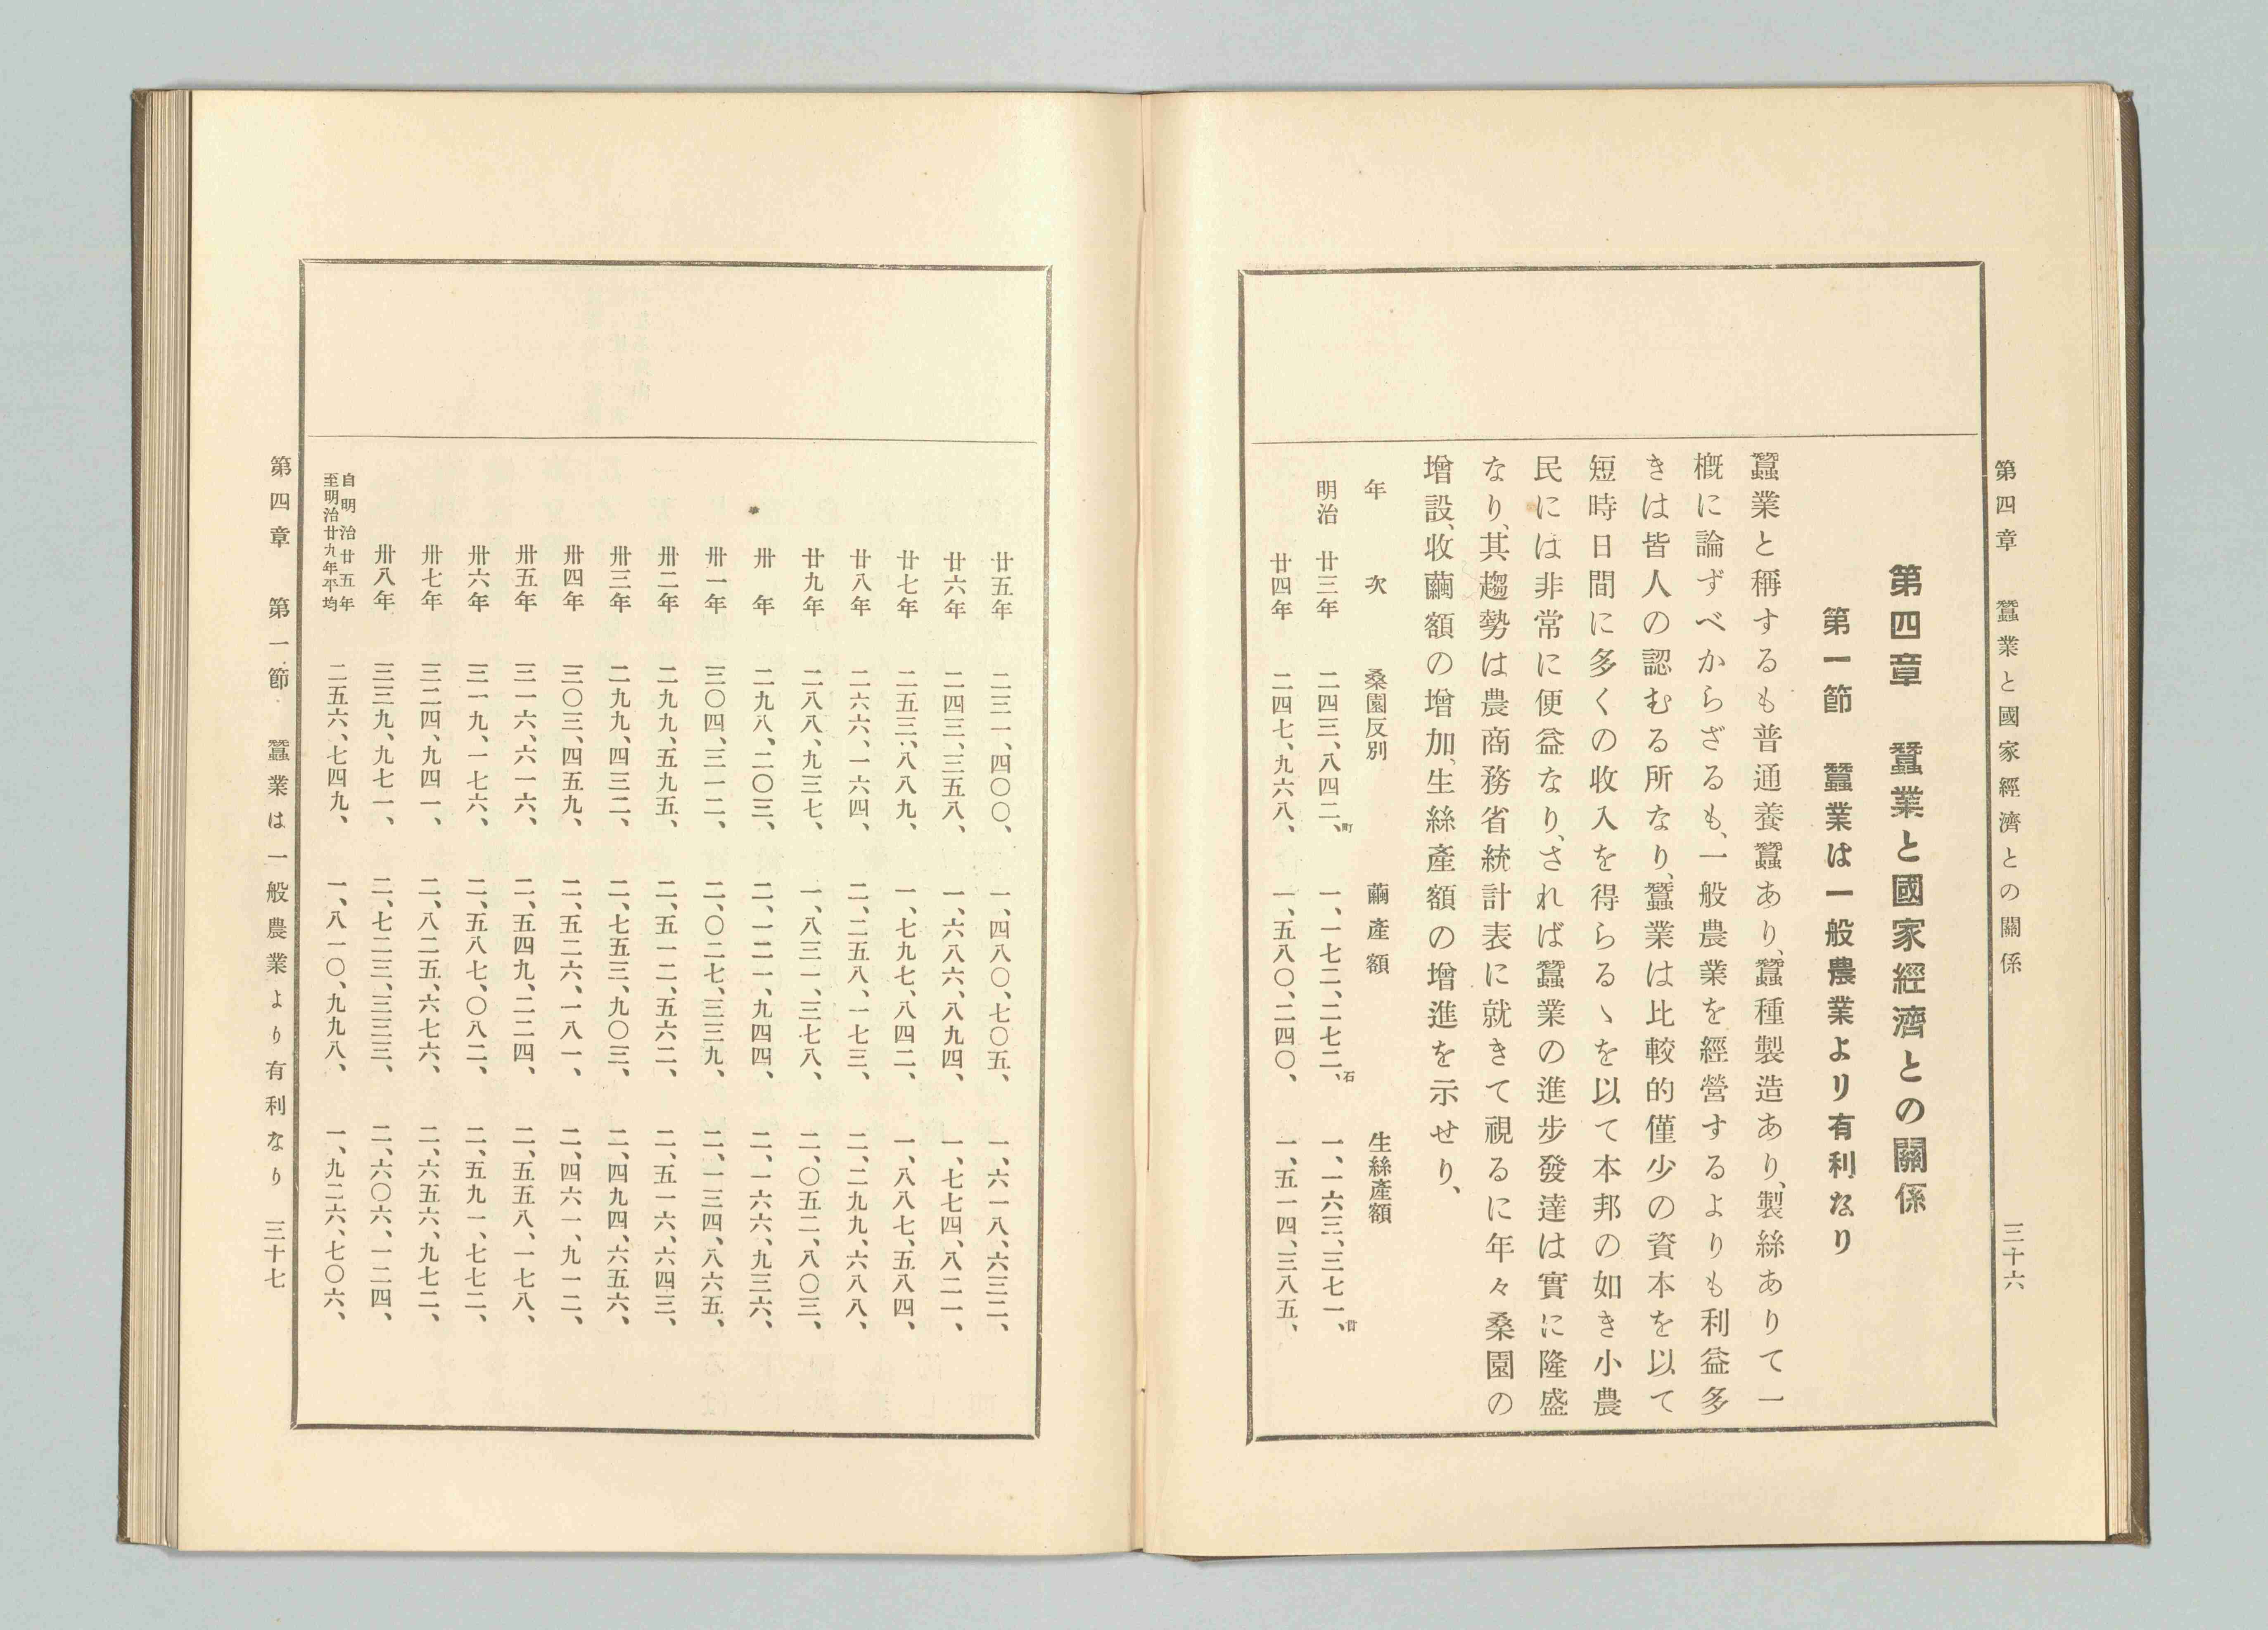 第四章　蠶業と國家經濟との關係　三十六
第四章　蠶業と國家經濟との關係
第一節　蠶業は一般農業より有利なり
蠶業と稱するも普通養蠶あり、蠶種製造あり、製絲ありて一
槪に論ずべからざるも、一般農業を經營するよりも利益多
きは皆人の認むる所なり、蠶業は比較的僅少の資本を以て
短時日間に多くの收入を得らるゝを以て本邦の如き小農
民には非常に便益なり、されば蠶業の進步發達は實に隆盛
なり、其趨勢は農商務省統計表に就きて視るに年々桑園の
增設、收繭額の增加、生絲產額の增進を示せり、
年次　桑園反別　繭產額　生絲產額
明治廿三年　二四三、八四二、町　一、一七二、二七二、石　一、一六三、三七一、貫
廿四年　二四七、九六八、　一、五八〇、二四〇、　一、五一四、三八五、
廿五年　二三一、四〇〇、　一、四八〇、七〇五、　一、六一八、六三二、
廿六年　二四三、三五八、　一、六八六、八九四、　一、七七四、八二一、
廿七年　二五三、八八九、　一、七九七、八四二、　一、八八七、五八四、
廿八年　二六六、一六四、　二、二五八、一七三、　二、二九九、六八八、
廿九年　二八八、九三七、　一、八三一、三七八、　二、〇五二、八〇三、
卅年　二九八、二〇三、　二、一二一、九四四、　二、一六六、九三六、
卅一年　三〇四、三一二、　二、〇二七、三三九、　二、一三四、八六五、
卅二年　二九九、五九五、　二、五一二、五六二、　二、五一六、六四三、
卅三年　二九九、四三二、　二、七五三、九〇三、　二、四九四、六五六、
卅四年　三〇三、四五九、　二、五二六、一八一、　二、四六一、九一二、
卅五年　三一六、六一六、　二、五四九、二二四、　二、五五八、一七八、
卅六年　三一九、一七六、　二、五八七、〇八二、　二、五九一、七七二、
卅七年　三二四、九四一、　二、八二五、六七六、　二、六五六、九七二、
卅八年　三三九、九七一、　二、七二三、三三三、　二、六〇六、一二四、
自明治廿五年
至明治廿九年平均　二五六、七四九、　一、八一〇、九九八、　一、九二六、七〇六、
第四章　第一節　蠶業は一般農業より有利なり　三十七